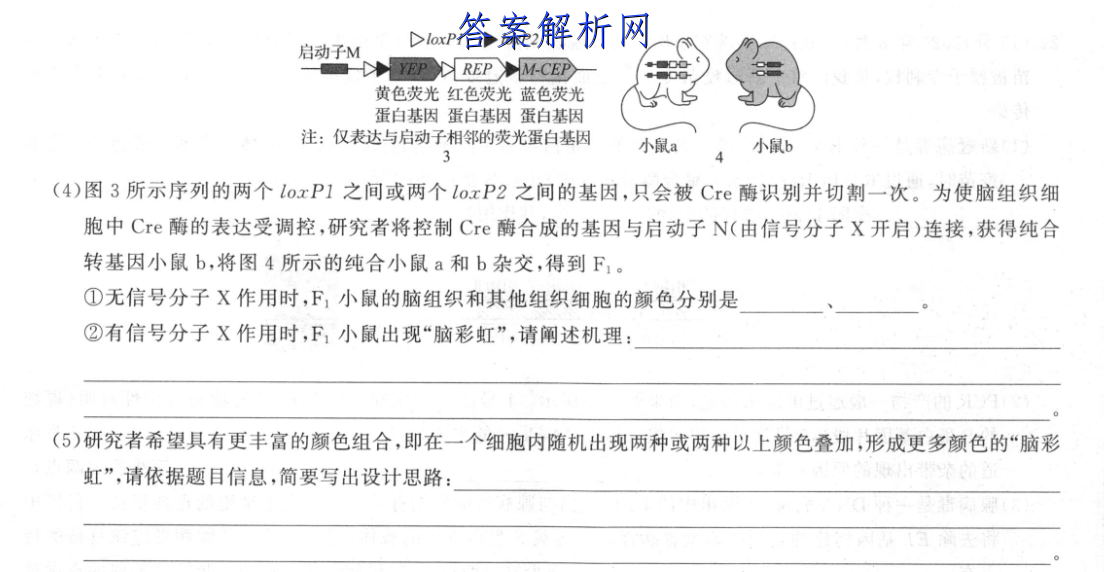 答案解析网
▷loxP1
启动子M
YEP REP M-CEP
黄色荧光 红色荧光 蓝色荧光
蛋白基因 蛋白基因 蛋白基因
注：仅表达与启动子相邻的荧光蛋白基因
3
小鼠a 小鼠b
4
(4)图 3 所示序列的两个 loxP1 之间或两个 loxP2 之间的基因,只会被 Cre 酶识别并切割一次。为使脑组织细
胞中 Cre 酶的表达受调控,研究者将控制 Cre 酶合成的基因与启动子 N(由信号分子 X 开启)连接,获得纯合
转基因小鼠 b,将图 4 所示的纯合小鼠 a 和 b 杂交,得到 F₁。
①无信号分子 X 作用时,F₁ 小鼠的脑组织和其他组织细胞的颜色分别是________、________。
②有信号分子 X 作用时,F₁ 小鼠出现“脑彩虹”,请阐述机理:________
。
(5)研究者希望具有更丰富的颜色组合,即在一个细胞内随机出现两种或两种以上颜色叠加,形成更多颜色的“脑彩
虹”,请依据题目信息,简要写出设计思路:________
。